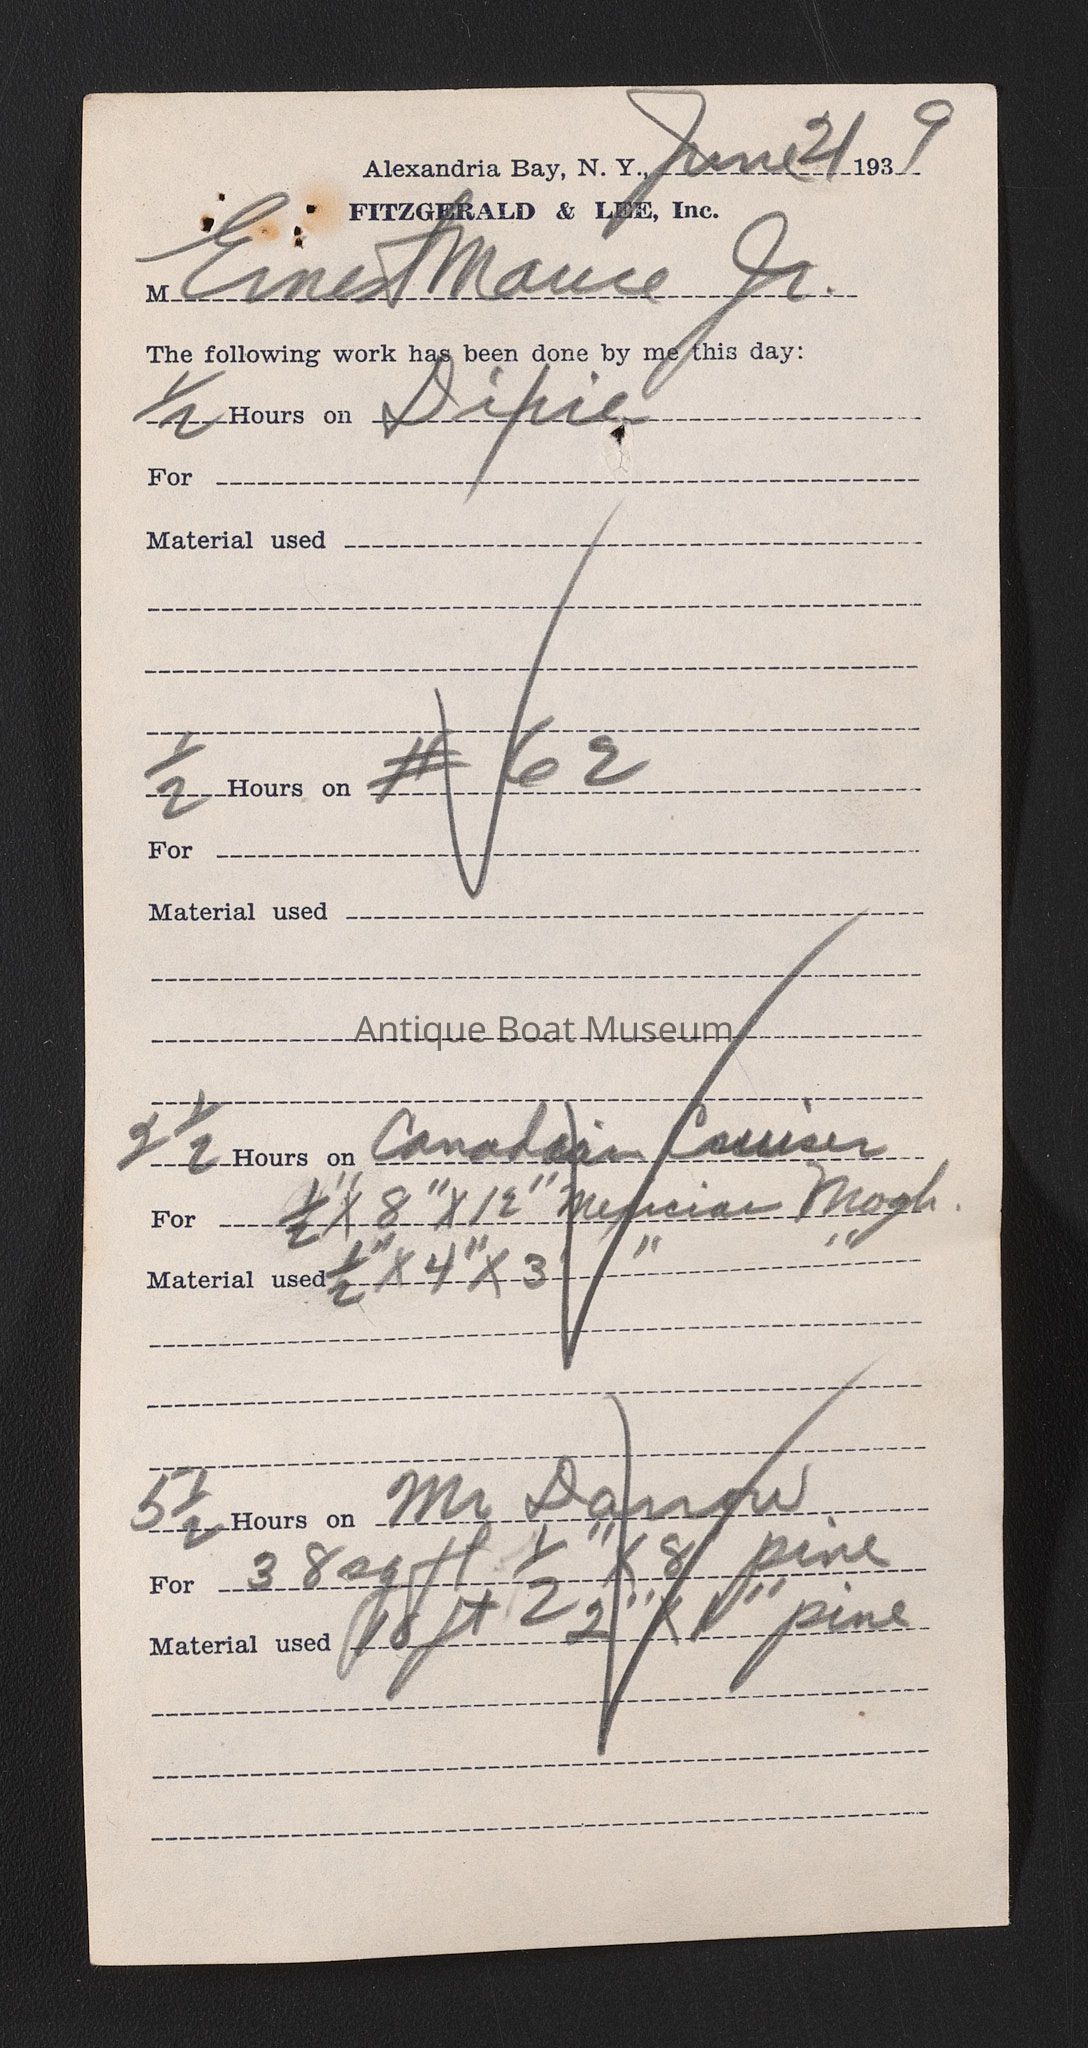 Alexandria Bay, N. Y., June 21 1939
FITZGERALD & LEE, Inc.
M Ernest Mauce Jr.
The following work has been done by me this day:
1/2 Hours on
For
Material used
1/2 Hours on # 62
For
Material used
Antique Boat Museum
2 1/2 Hours on Canadain Cruiser
For 1/2" X 8" X 12" Mexician Mogh.
Material used 1/2" X 4" X 3' " "
5 1/2 Hours on Mr Darrow
For 38 sq ft 1/2" X 8" pine
Material used 18 ft 2" X 1" pine